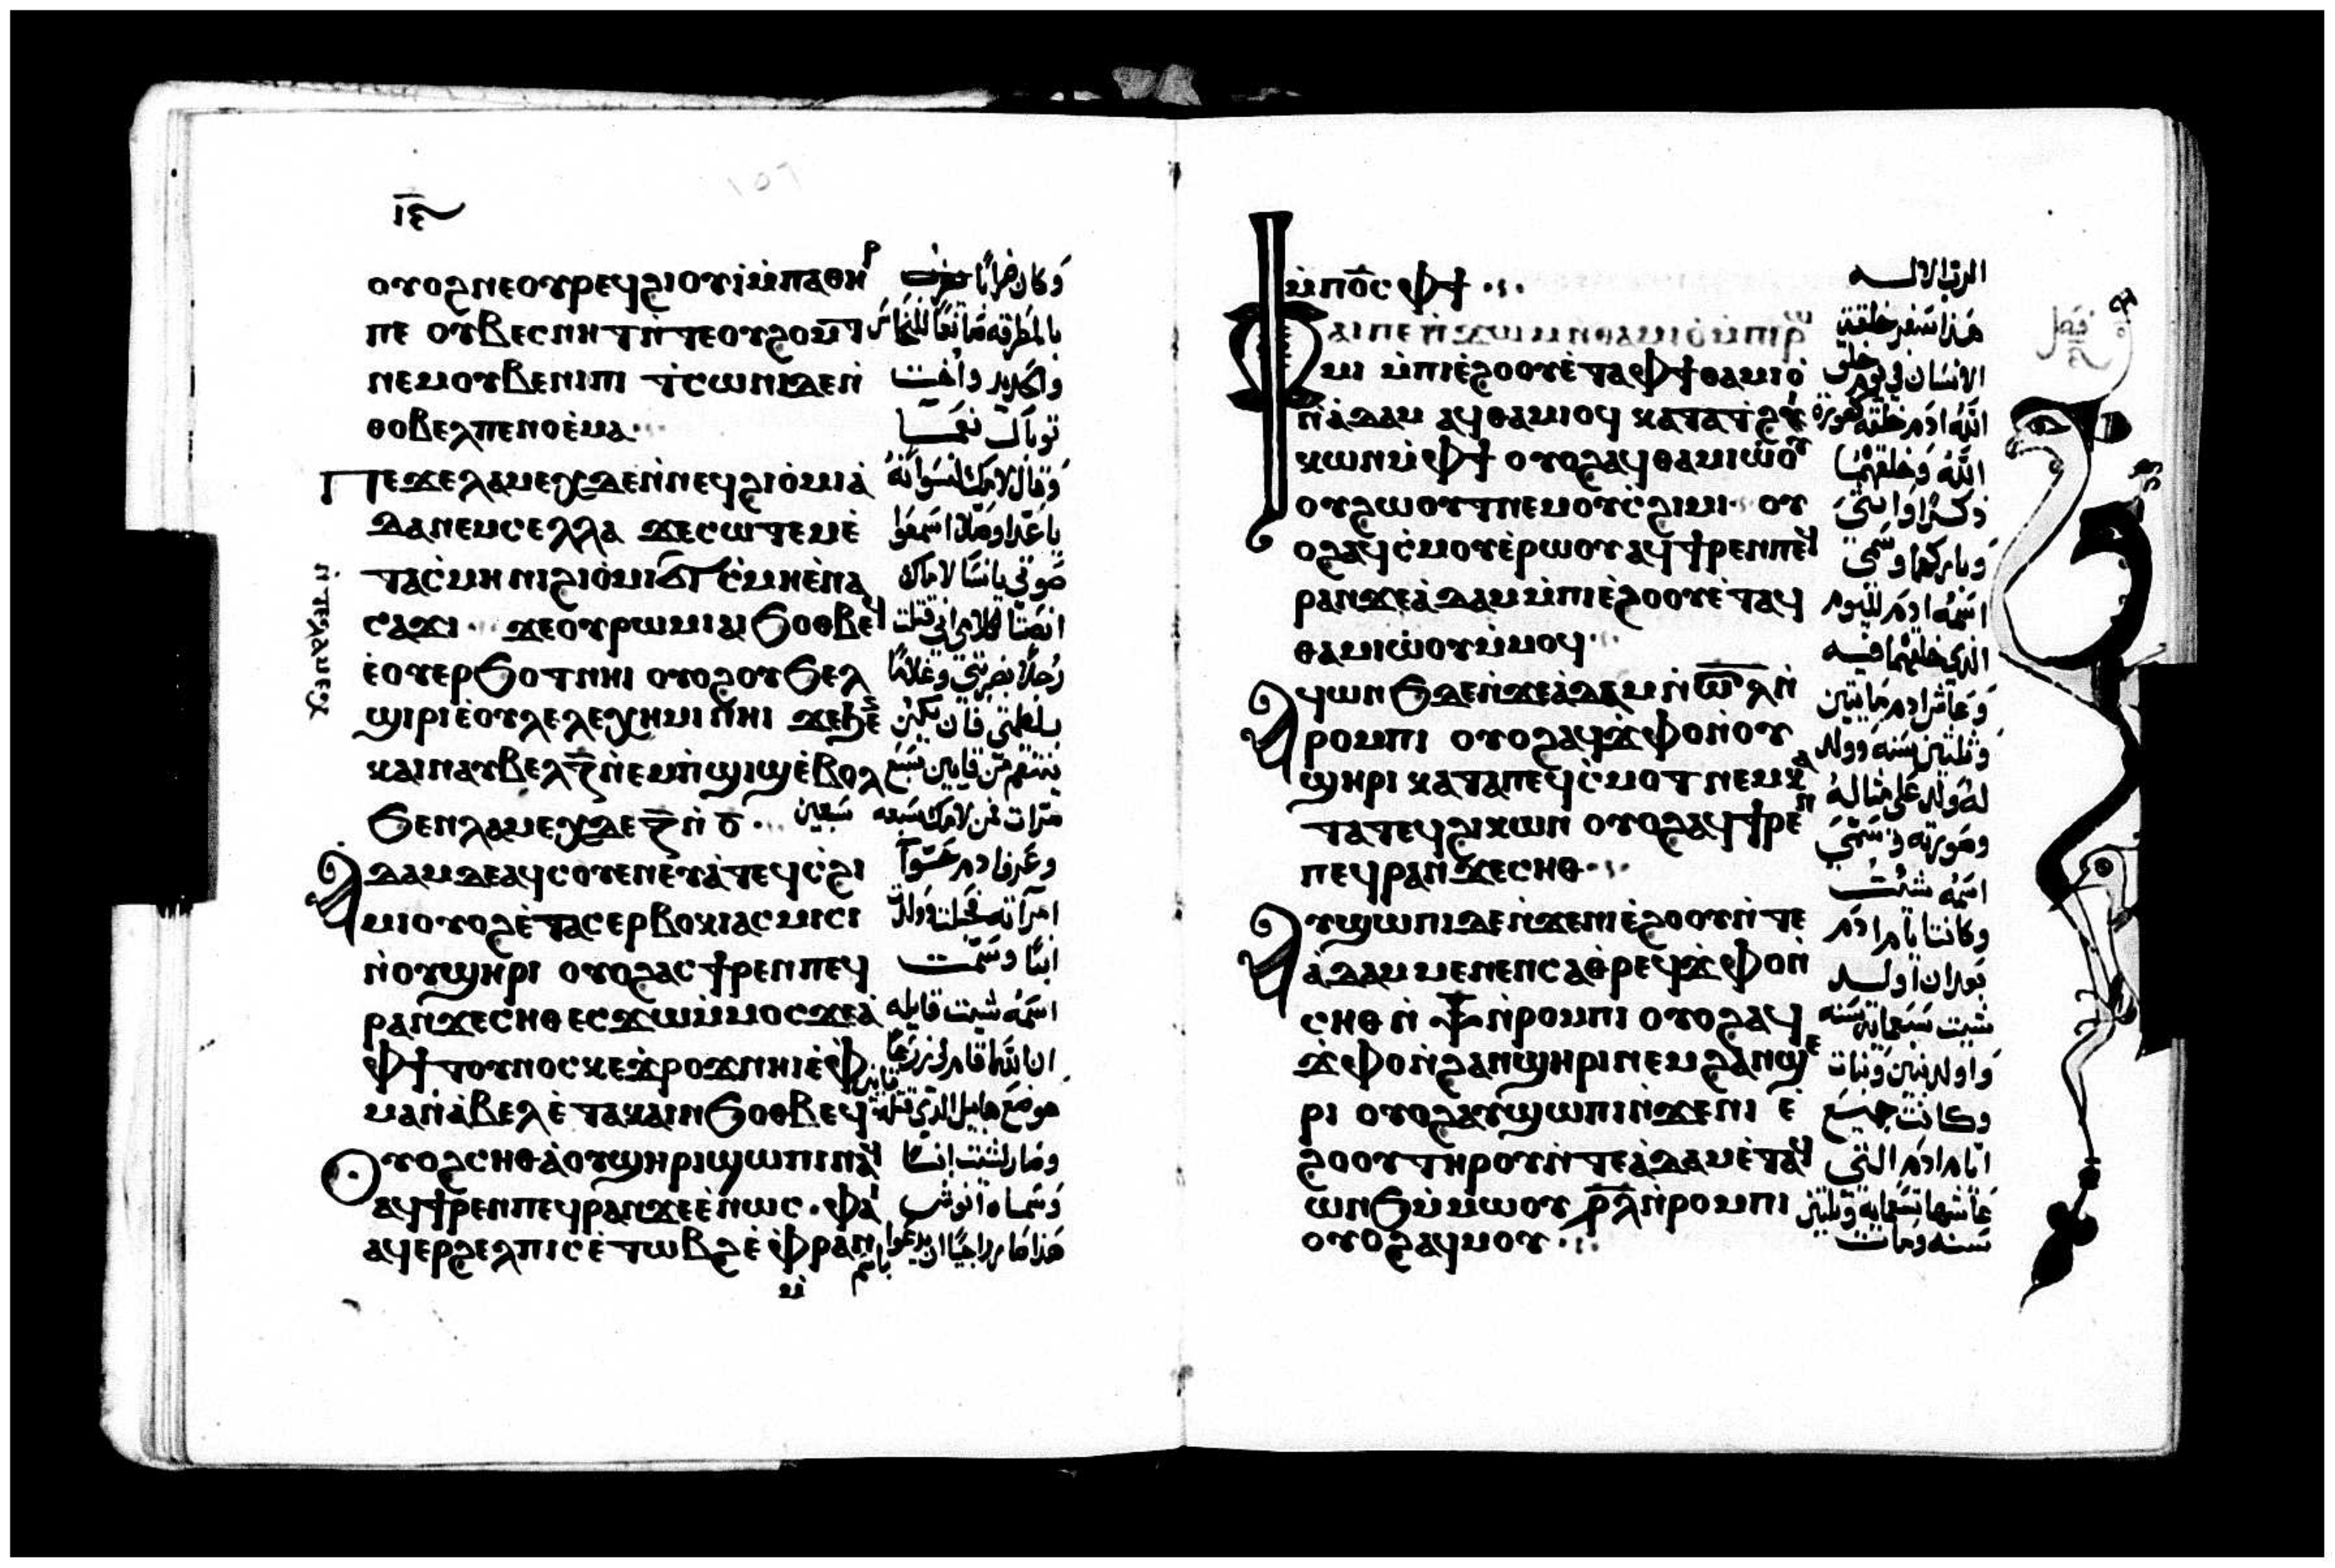 ⲓⲉ
ⲟⲩⲟϩ ⲛⲉⲟⲩⲣⲉϥϩⲓⲟⲩⲓ ⲙ̇ⲡⲁⲑⲏⲣ
ⲡⲉ ⲟⲩⲃⲉⲥⲛⲏⲧ ⲛ̇ⲧⲉ ⲟⲩϩⲟⲙⲧ
ⲛⲉⲙ ⲟⲩⲃⲉⲛⲓⲡⲓ ⲧ̇ⲥⲱⲛⲓ ⲇⲉ ⲛ̇
ⲑⲟⲃⲉⲗ ⲡⲉ ⲛⲟⲉ̇ⲙⲁ
ⲡⲉϫⲉ ⲗⲁⲙⲉⲭ ⲇⲉ ⲛ̇ⲛⲉϥϩⲓⲟ̇ⲙⲓ ⲁ̇
ⲇⲁ ⲛⲉⲙ ⲥⲉⲗⲗⲁ ϫⲉ ⲥⲱⲧⲉⲙ ⲉ̇
ⲧⲁⲥ̇ⲙⲏ ⲛⲓϩⲓⲟ̇ⲙⲓ ϭⲓⲥ̇ⲙⲏ ⲉ̇ⲛⲁ
ⲥⲁϫⲓ ϫⲉ ⲟⲩⲣⲱⲙⲓ ⲁⲓϧⲟⲑⲃⲉϥ
ⲉ̇ⲟⲩⲉⲣϧⲟⲧ ⲛⲏⲓ ⲟⲩⲟϩ ⲟⲩϧⲉⲗ
ϣⲓⲣⲓ ⲉ̇ⲟⲩⲗⲉⲗⲉⲭⲏⲙⲓ ⲛⲏⲓ
ⲕⲁⲓⲛ ⲁⲩⲃⲉⲗ ⲍ̅ ⲛ̇ⲉⲙⲡ̇ϣⲓϣ ⲉ̇ⲃⲟⲗ
ϧⲉⲛ ⲗⲁⲙⲉⲭ ⲇⲉ ⲍ̅ ⲛ̇ ⲟ̅
ⲛ̇ⲧⲉ ⲗⲁⲙⲉⲭ
ⲁⲇⲁⲙ ⲇⲉ ⲁϥⲥⲟⲩⲉⲛ ⲉⲩⲁ̇ ⲧⲉϥⲥ̇ϩⲓ
ⲙⲓ ⲟⲩⲟϩ ⲉ̇ⲧⲁⲥⲉⲣⲃⲟⲕⲓ ⲁⲥⲙⲓⲥⲓ
ⲛ̇ⲟⲩϣⲏⲣⲓ ⲟⲩⲟϩ ⲁⲥϯⲣⲉⲛ ⲡⲉϥ
ⲣⲁⲛ ϫⲉ ⲥⲏⲑ ⲉⲥϫⲱ ⲙ̇ⲙⲟⲥ ϫⲉ ⲁ̇
ⲫϯ ⲧⲟⲩⲛⲟⲥ ⲕⲉϫ̇ⲣⲟϫ ⲛⲏⲓ ⲉ̇ⲫ
ⲙⲁ ⲛ̇ⲁ̇ⲃⲉⲗ ⲉ̇ⲧⲁ ⲕⲁⲓⲛ ϧⲟⲑⲃⲉϥ
ⲟⲩⲟϩ ⲥⲏⲑ ⲁ̇ ⲟⲩϣⲏⲣⲓ ϣⲱⲡⲓ ⲛⲁϥ
ⲁϥϯⲣⲉⲛ ⲡⲉϥⲣⲁⲛ ϫⲉ ⲉ̇ⲛⲱⲥ ⲫⲁⲓ
ⲁϥⲉⲣϩⲉⲗⲡⲓⲥ ⲉ̇ⲧⲱⲃϩ ⲉ̇ⲫⲣⲁⲛ
ⲙ̇
وكان ضرابا
بالمطرقة صانعا للنحاس
والحديد واخت
توبال نعما
وقال لامك لنسوانه
يا عدا وصلا اسمعوا
صوتي يا نسا لامك
انصتا لكلامي اني قتلت
رجلا بضربتي وغلاما
ينتقم من قايين سبع
مرات فمن لامك سبعه سبعين
وعرف ادم حوا
امراته فحبلت وولدت
ابنا وسمت
اسمه شيت قايله
ان الله اقام لي زرعا
موضع هابيل الذي قتله قايين
وصار لشيت ابنا
وسماه انوش
هذا كان راجيا ان يدعوا باسم
ⲙ̇ⲡⲟ̅ⲥ̅ ⲫϯ
ⲫⲁⲓ ⲡⲉ ⲡ̇ϫⲱⲙ ⲙ̇ⲡ̇ⲑⲁⲙⲓⲟ̇ ⲙ̇ⲡⲓⲣⲱ
ⲙⲓ ⲙ̇ⲡⲓⲉ̇ϩⲟⲟⲩ ⲉ̇ⲧⲁ ⲫϯ ⲑⲁⲙⲓⲟ̇
ⲛ̇ⲁ̇ⲇⲁⲙ ⲁϥⲑⲁⲙⲓⲟϥ ⲕⲁⲧⲁ ⲧ̇ϩⲓ
ⲕⲱⲛ ⲙ̇ⲫϯ ⲟⲩⲟϩ ⲁϥⲑⲁⲙⲓⲱ̇ⲟⲩ
ⲟⲩϩⲱⲟⲩⲧ ⲛⲉⲙ ⲟⲩⲥ̇ϩⲓⲙⲓ ⲟⲩ
ⲟϩ ⲁϥⲥ̇ⲙⲟⲩ ⲉ̇ⲣⲱⲟⲩ ⲁϥϯⲣⲉⲛ ⲡⲉϥ
ⲣⲁⲛ ϫⲉ ⲁ̇ⲇⲁⲙ ⲙ̇ⲡⲓⲉ̇ϩⲟⲟⲩ ⲉ̇ⲧⲁϥ
ⲑⲁⲙⲓⲱ̇ⲟⲩ ⲙ̇ⲙⲟϥ
ⲁϥⲱⲛϧ ⲇⲉ ⲛ̇ϫⲉ ⲁ̇ⲇⲁⲙ ⲛ̇ ⲥ̅ⲗ̅ ⲛ̇
ⲣⲟⲙⲡⲓ ⲟⲩⲟϩ ⲁϥϫ̇ⲫⲟ ⲛ̇ⲟⲩ
ϣⲏⲣⲓ ⲕⲁⲧⲁ ⲡⲉϥⲥ̇ⲙⲟⲧ ⲛⲉⲙ ⲕⲁ
ⲧⲁ ⲧⲉϥϩⲓⲕⲱⲛ ⲟⲩⲟϩ ⲁϥϯⲣⲉⲛ
ⲡⲉϥⲣⲁⲛ ϫⲉ ⲥⲏⲑ
ⲁⲩϣⲱⲡⲓ ⲇⲉ ⲛ̇ϫⲉ ⲛⲓⲉ̇ϩⲟⲟⲩ ⲛ̇ⲧⲉ
ⲁ̇ⲇⲁⲙ ⲙⲉⲛⲉⲛⲥⲁ ⲑ̇ⲣⲉϥϫ̇ⲫⲟ ⲛ̇
ⲥⲏⲑ ⲛ̇ ⲯ̅ ⲛ̇ⲣⲟⲙⲡⲓ ⲟⲩⲟϩ ⲁϥ
ϫ̇ⲫⲟ ⲛ̇ϩⲁⲛϣⲏⲣⲓ ⲛⲉⲙ ϩⲁⲛϣⲉ
ⲣⲓ ⲟⲩⲟϩ ⲁⲩϣⲱⲡⲓ ⲛ̇ϫⲉ ⲛⲓ ⲉ̇
ϩⲟⲟⲩ ⲧⲏⲣⲟⲩ ⲛ̇ⲧⲉ ⲁ̇ⲇⲁⲙ ⲉ̇ⲧⲁϥ
ⲱⲛϧ ⲙ̇ⲙⲱⲟⲩ ϣ̅ⲗ̅ ⲛ̇ⲣⲟⲙⲡⲓ
ⲟⲩⲟϩ ⲁϥⲙⲟⲩ
الرب الاله
هذا سفر خلقة
الانسان في يوم خلق
الله ادم خلقه كصورة
الله وخلقهما
ذكرا وانثى
وباركهما وسمى
اسمه ادم لليوم
الذي خلقهما فيه
وعاش ادم مايتين
وثلثين سنه وولد
له ولد على مثاله
وصورته وسمى
اسمه شيت
وكانت ايام ادم
بعد ان اولد
شيت سبعمايه سنه
واولد بنين وبنات
وكانت جميع
ايام ادم التي
عاشها تسعمايه وثلثين
سنه ومات
فصل